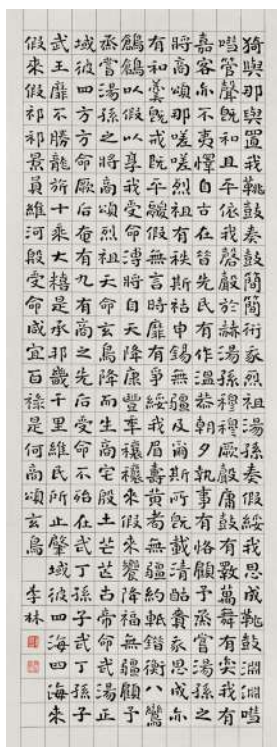 猗與那與置我鞉鼓奏鼓簡簡衎我烈祖湯孫奏假綏我思成鞉鼓淵淵嘒
嘒管聲既和且平依我磬聲於赫湯孫穆穆厥聲庸鼓有斁萬舞有奕我有
嘉客亦不夷懌自古在昔先民有作溫恭朝夕執事有恪顧予烝嘗湯孫之
將商頌那嗟嗟烈祖有秩斯祜申錫無疆及爾斯所既載清酤賚我思成亦
有和羹既戒既平鬷假無言時靡有爭綏我眉壽黃耇無疆約軧錯衡八鸞
鶬鶬以假以享我受命溥將自天降康豐年穰穰來假來饗降福無疆顧予
烝嘗湯孫之將商頌烈祖天命玄鳥降而生商宅殷土芒芒古帝命武湯正
域彼四方方命厥后奄有九有商之先后受命不殆在武丁孫子武丁孫子
武王靡不勝龍旂十乘大糦是承邦畿千里維民所止肇域彼四海四海來
假來假祁祁景員維河殷受命咸宜百祿是何商頌玄鳥 李林